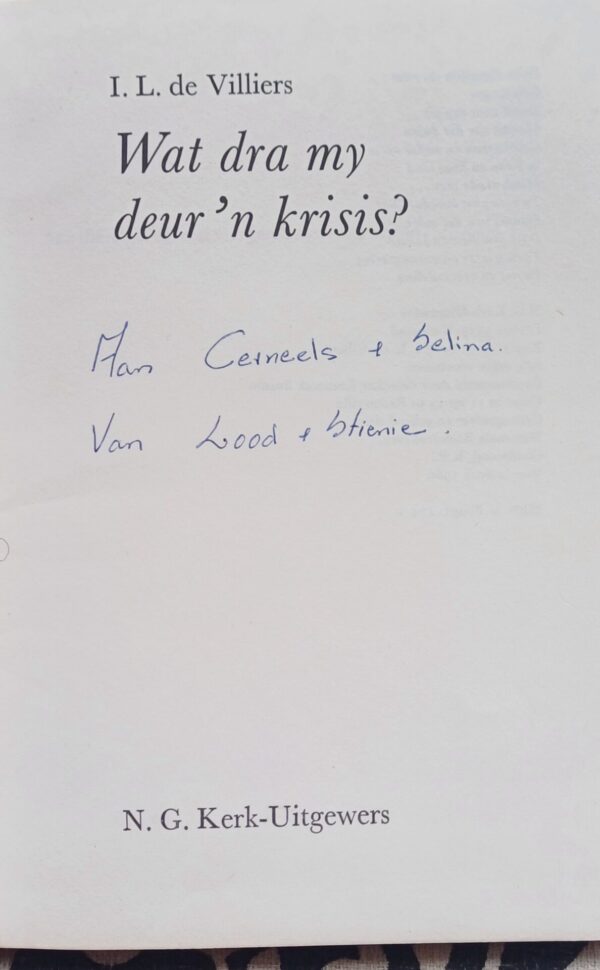 I. L. de Villiers
Wat dra my
deur 'n krisis?
Aan Cerneels + Selina.
Van Lood + Stienie.
N. G. Kerk-Uitgewers